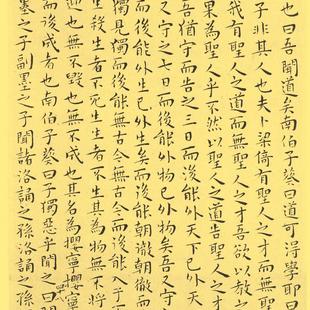 也曰吾聞道矣南伯子葵曰道可得學耶曰
子非其人也夫卜梁倚有聖人之才而無聖
我有聖人之道而無聖人之才吾欲以教之
果為聖人乎不然以聖人之道告聖人之才
吾猶守而告之三日而後能外天下已外天
又守之七日而後能外物已外物矣吾又守
而後能外生已外生矣而後能朝徹朝徹而
獨見獨而後能無古今無古今而後能入於
生殺生者不死生生者不生其為物無不將
迎也無不毀也無不成也其名為攖寧攖寧
而後成者也南伯子葵曰子獨惡乎聞之曰
墨之子副墨之子聞諸洛誦之孫洛誦之孫